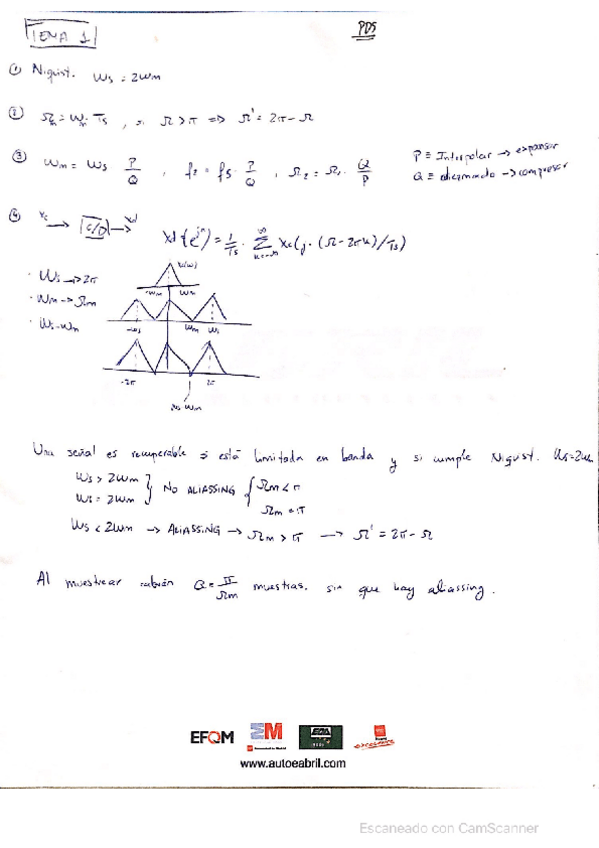 TEMA 1
PDS
① Niquist. Ws = 2Wm
② Ωm = Wm Ts , si Ω > π ⇒ Ω' = 2π - Ω
③ Wm = Ws P/Q , f2 = fs · P/Q , Ω2 = Ω1 · Q/P
P ≡ Interpolar → expansor
Q ≡ diezmando → compresor
④ xc → [C/D] → xd
Xd(e^jΩ) = 1/Ts · Σ Xc(j · (Ω - 2πk)/Ts)
k=-∞ ∞
Xc(w)
· Ws → 2π
-Wm Wm
· Wm → Ωm
· Ws-Wm
-Ws Wm Ws
-2π 2π
Una señal es recuperable si está limitada en banda y si cumple Niquist. Ws=2Wm
Ws > 2Wm
Ws = 2Wm
} NO ALIASSING {
Ωm < π
Ωm = π
Ws < 2Wm → ALIASSING → Ωm > π → Ω' = 2π - Ω
Al muestrear cabrán Q = π/Ωm muestras, sin que hay aliassing.
EFQM
EM
www.autoeabril.com
Escaneado con CamScanner